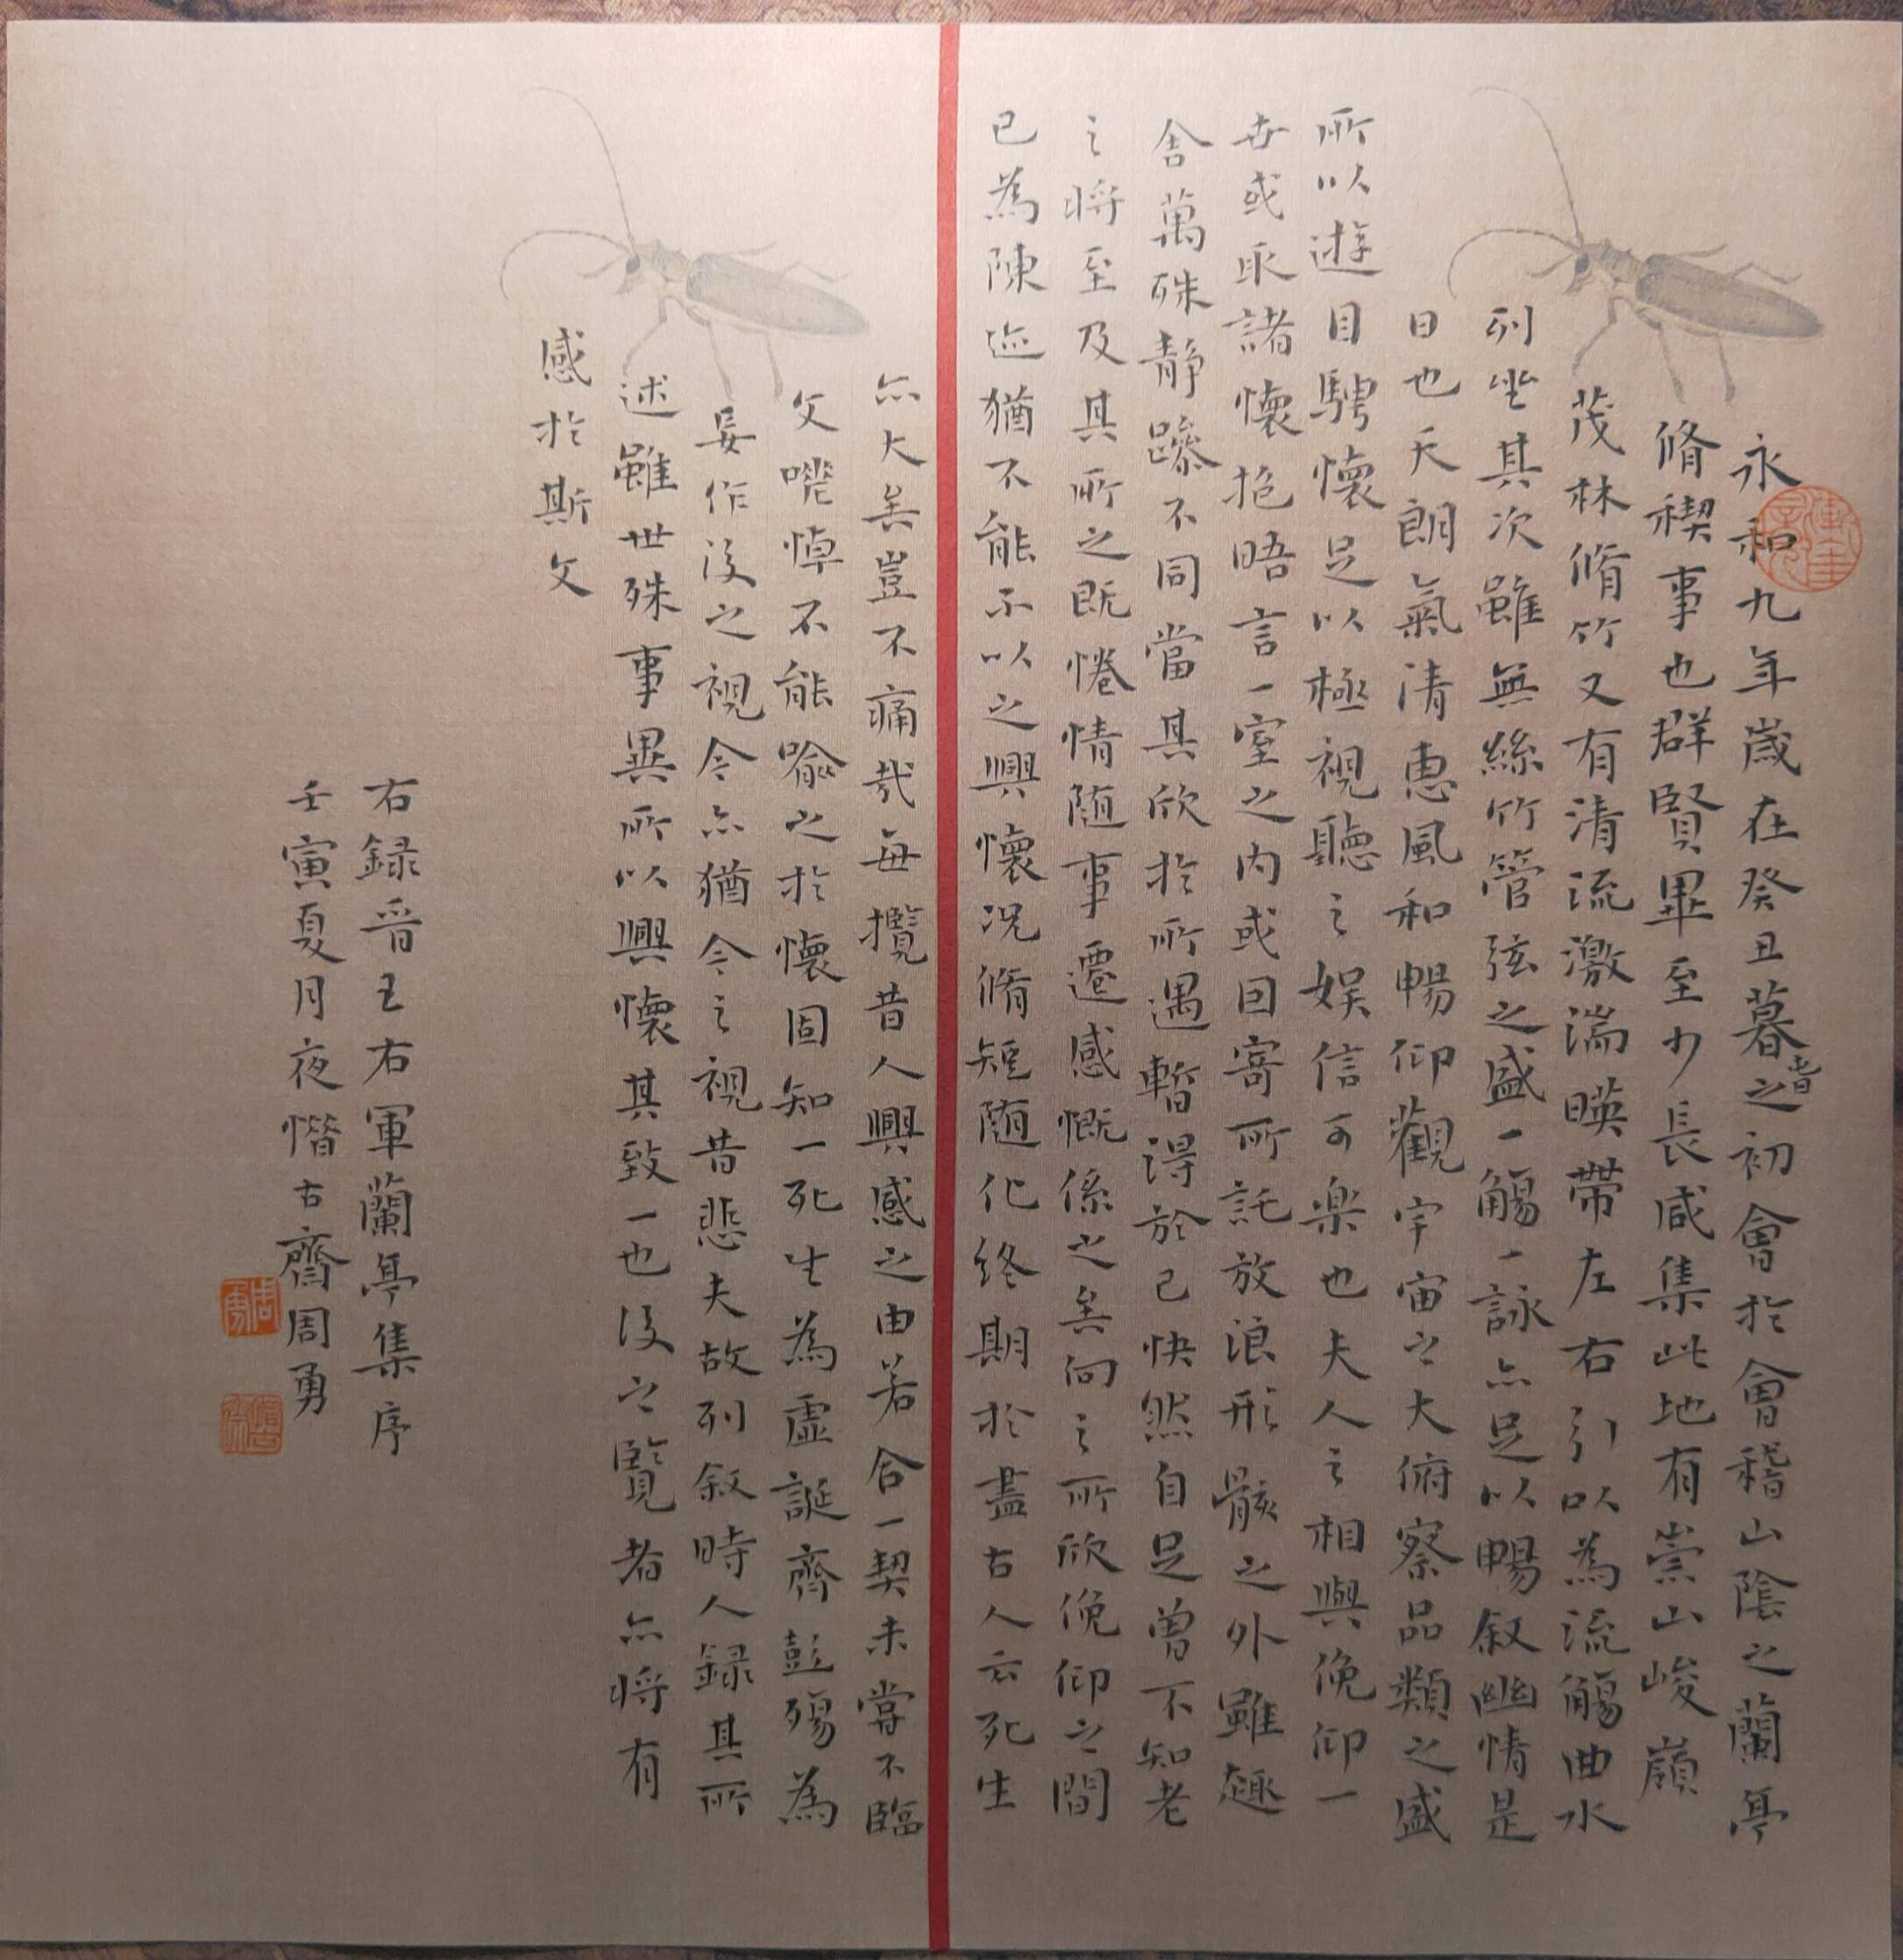 永和九年歲在癸丑暮旾之初會於會稽山陰之蘭亭
脩禊事也群賢畢至少長咸集此地有崇山峻嶺
茂林脩竹又有清流激湍暎帶左右引以為流觴曲水
列坐其次雖無絲竹管弦之盛一觴一詠亦足以暢敘幽情是
日也天朗氣清惠風和暢仰觀宇宙之大俯察品類之盛
所以遊目騁懷足以極視聽之娛信可樂也夫人之相與俛仰一
世或取諸懷抱晤言一室之內或因寄所託放浪形骸之外雖趣
舍萬殊靜躁不同當其欣於所遇暫得於己快然自足曾不知老
之將至及其所之既惓情隨事遷感慨係之矣向之所欣俛仰之間
已為陳迹猶不能不以之興懷況脩短隨化終期於盡古人云死生
亦大矣豈不痛哉每攬昔人興感之由若合一契未嘗不臨
文嗟悼不能喻之於懷固知一死生為虛誕齊彭殤為
妄作後之視今亦猶今之視昔悲夫故列敘時人錄其所
述雖世殊事異所以興懷其致一也後之覽者亦將有
感於斯文
右錄晉王右軍蘭亭集序
壬寅夏月夜憯古齋周勇
周勇